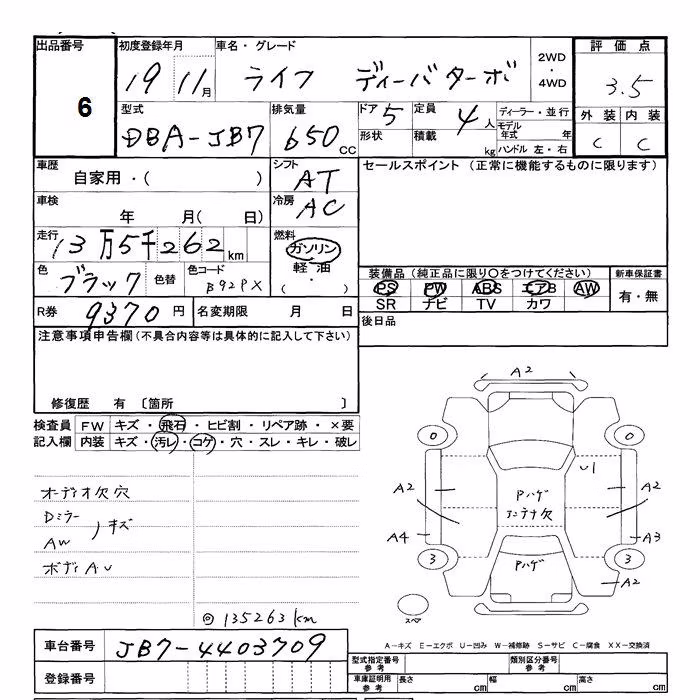 出品番号 初度登録年月 車名・グレード 2WD・4WD 評価点
6 19 11月 ライフ ディーバターボ 3.5
型式 排気量 ドア 5 定員 4人 ディーラー・並行 外装 内装
DBA-JB7 650cc 形状 積載 kg モデル年式 年 C C
ハンドル 左・右
車歴 シフト セールスポイント (正常に機能するものに限ります)
自家用・( ) AT
車検 冷房
年 月( 日) AC
走行 燃料
13万5千262km ガソリン
色 ブラック 色替 色コード B92PX 軽油・( )
装備品 (純正品に限り○をつけてください) 新車保証書
PS PW ABS エアB AW 有・無
SR ナビ TV カワ
R券 9370円 名変期限 月 日
後日品
注意事項申告欄(不具合内容等は具体的に記入して下さい)
修復歴 有 〔箇所 〕
検査員 FW キズ・飛石・ヒビ割・リペア跡・×要
記入欄 内装 キズ・汚レ・コゲ・穴・スレ・キレ・破レ
オーディオ欠穴
Dミラー
AW
キズ
ボディAU
◎135263km
A2
0 0
U1
A2 A2
Pハゲ
アンテナ欠
A4 A3
3 3
Pハゲ
A2
スペア
A-キズ E-エクボ U-凹み W-補修跡 S-サビ C-腐食 XX-交換済
車台番号 JB7-4403709
型式指定番号 参考 類別区分番号 参考
登録番号
車庫証明用 参考 長さ cm 幅 cm 高さ cm